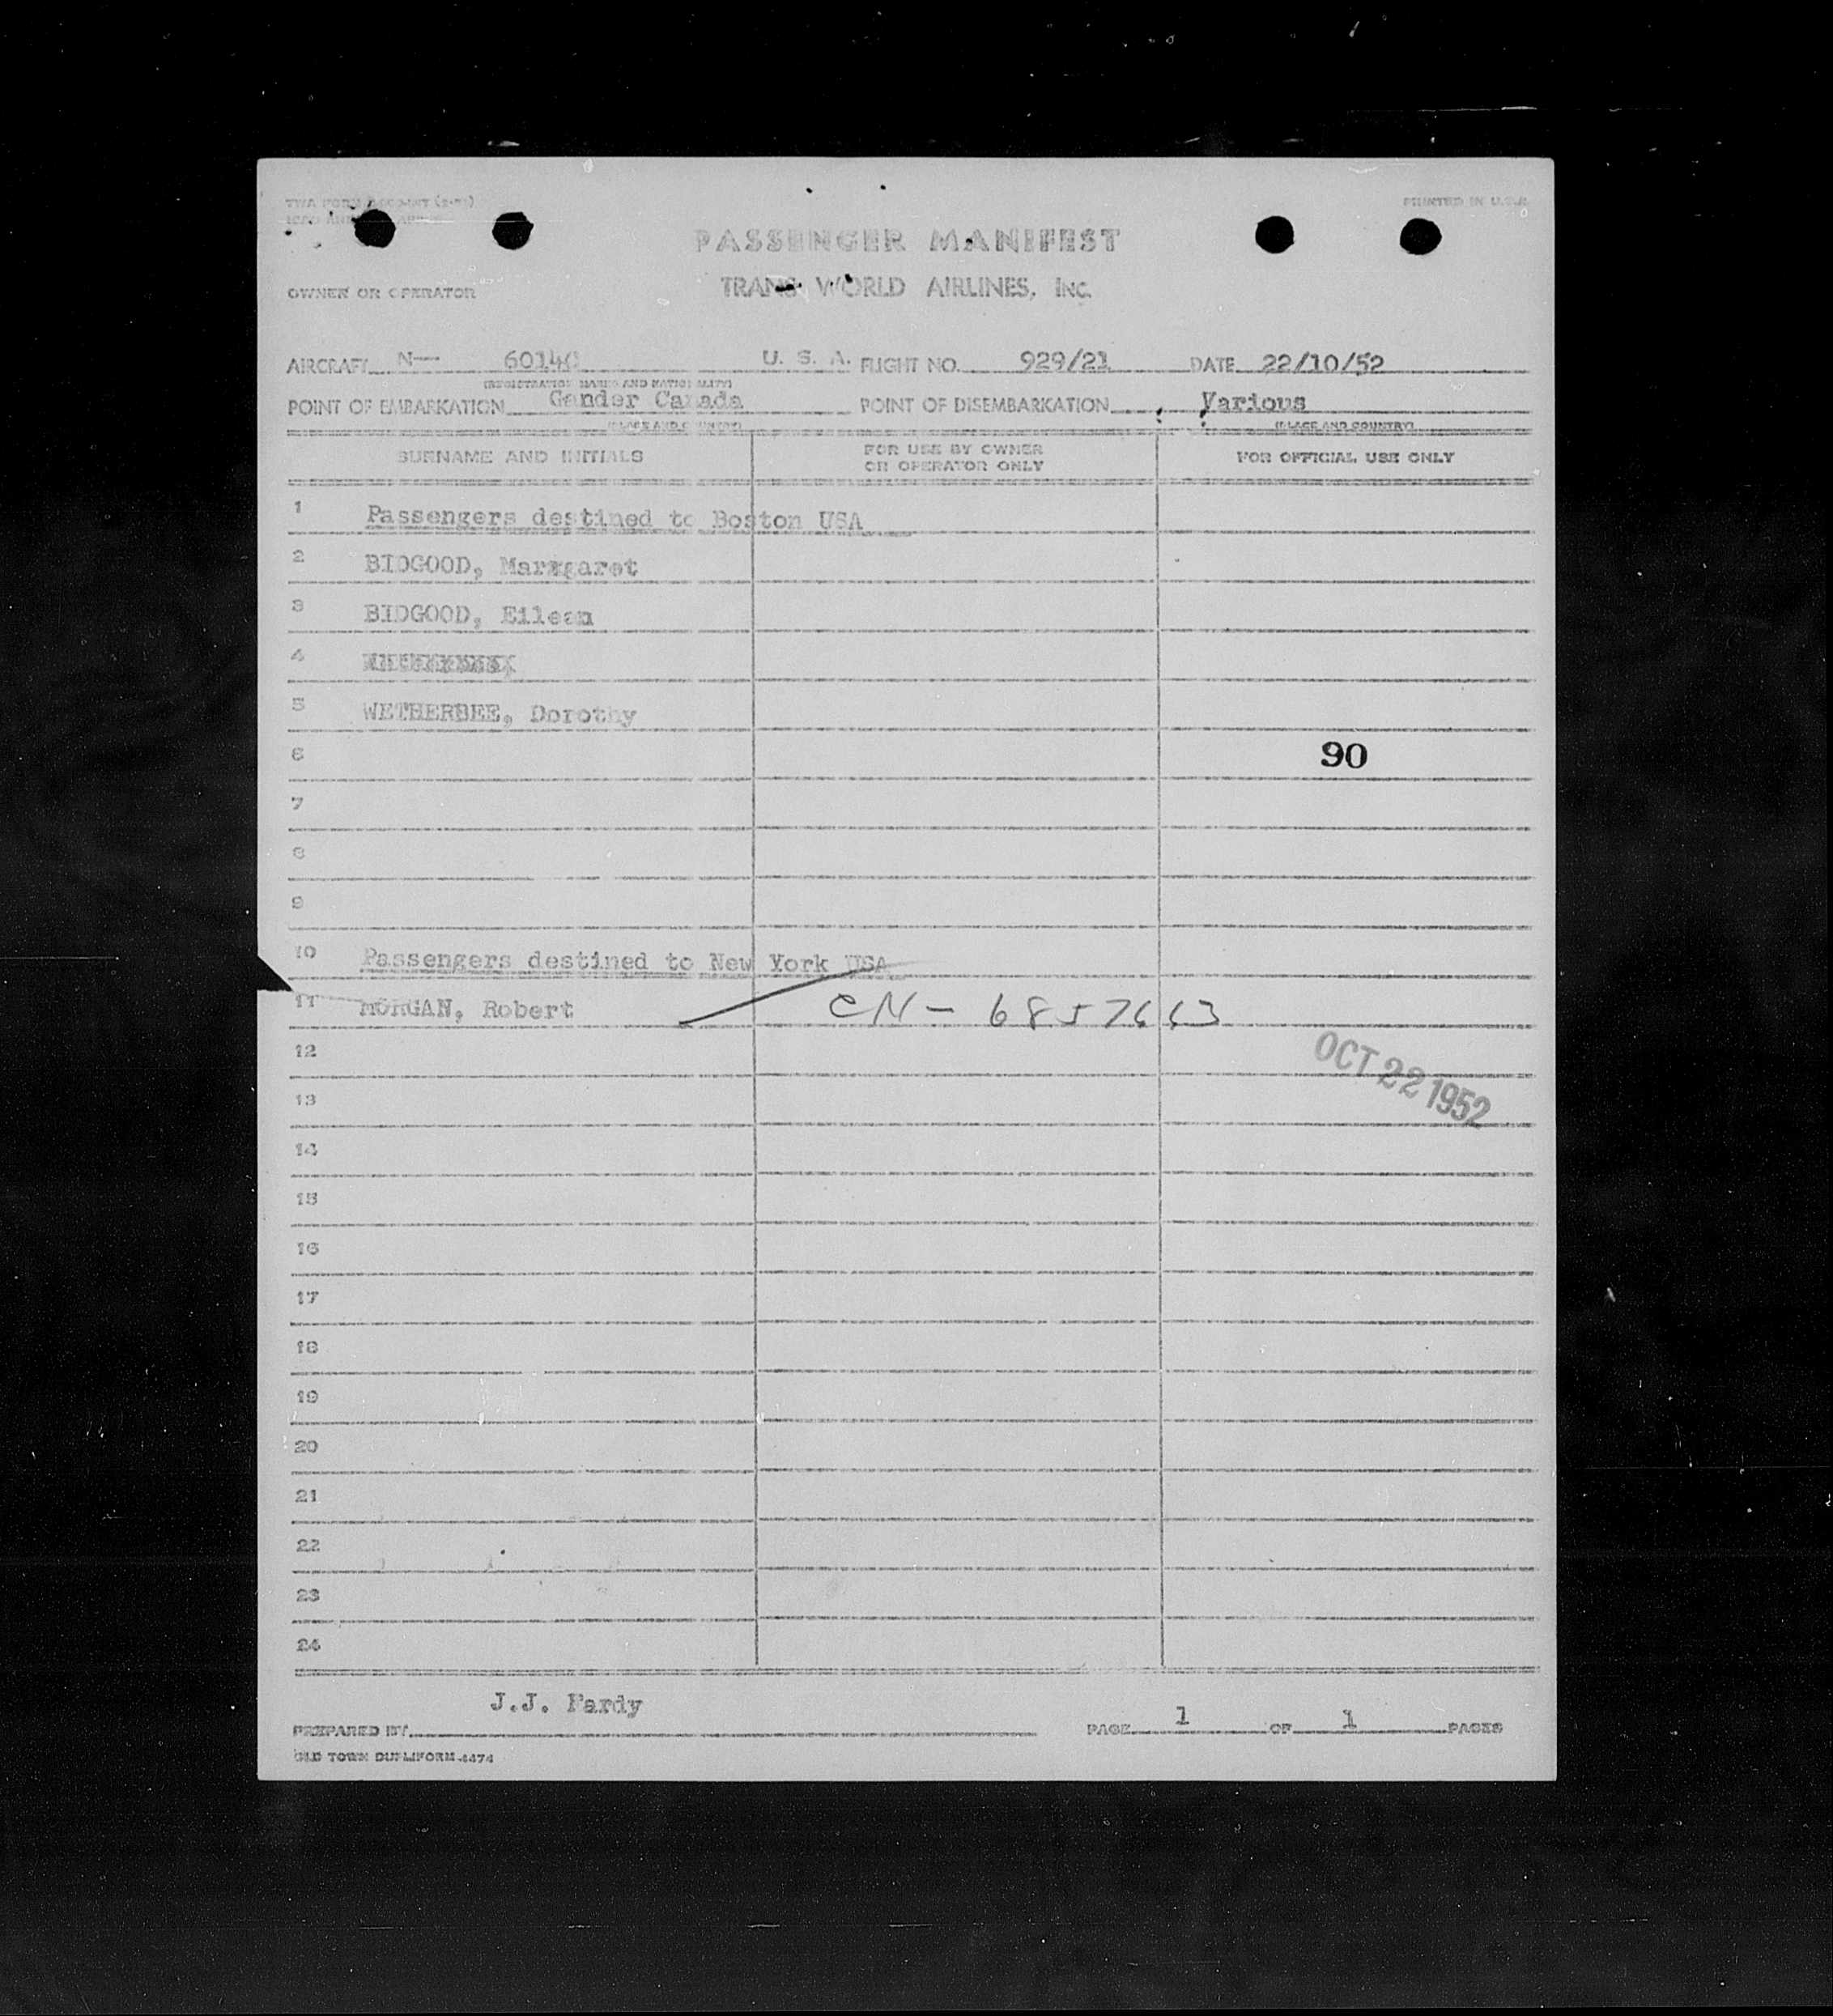 PRINTED IN U.S.A.
PASSENGER MANIFEST
OWNER OR OPERATOR TRANS WORLD AIRLINES, INC.
AIRCRAFT N— U. S. A. FLIGHT NO. 929/21 DATE 22/10/52
(REGISTRATION MARKS AND NATIONALITY)
POINT OF EMBARKATION Gander Canada POINT OF DISEMBARKATION Various
(PLACE AND COUNTRY) (PLACE AND COUNTRY)
SURNAME AND INITIALS FOR USE BY OWNER OR OPERATOR ONLY FOR OFFICIAL USE ONLY
1 Passengers destined to Boston USA
2 BIDGOOD, Marxgaret
3 BIDGOOD, Eileen
4
5 WETHERBEE, Dorothy
6 90
7
8
9
10 Passengers destined to New York USA
11 MORGAN, Robert CN - 6857663
12 OCT 22 1952
13
14
15
16
17
18
19
20
21
22
23
24
J.J. Pardy
PREPARED BY PAGE 1 OF 1 PAGES
OLD TOWN DUPLIFORM 4474